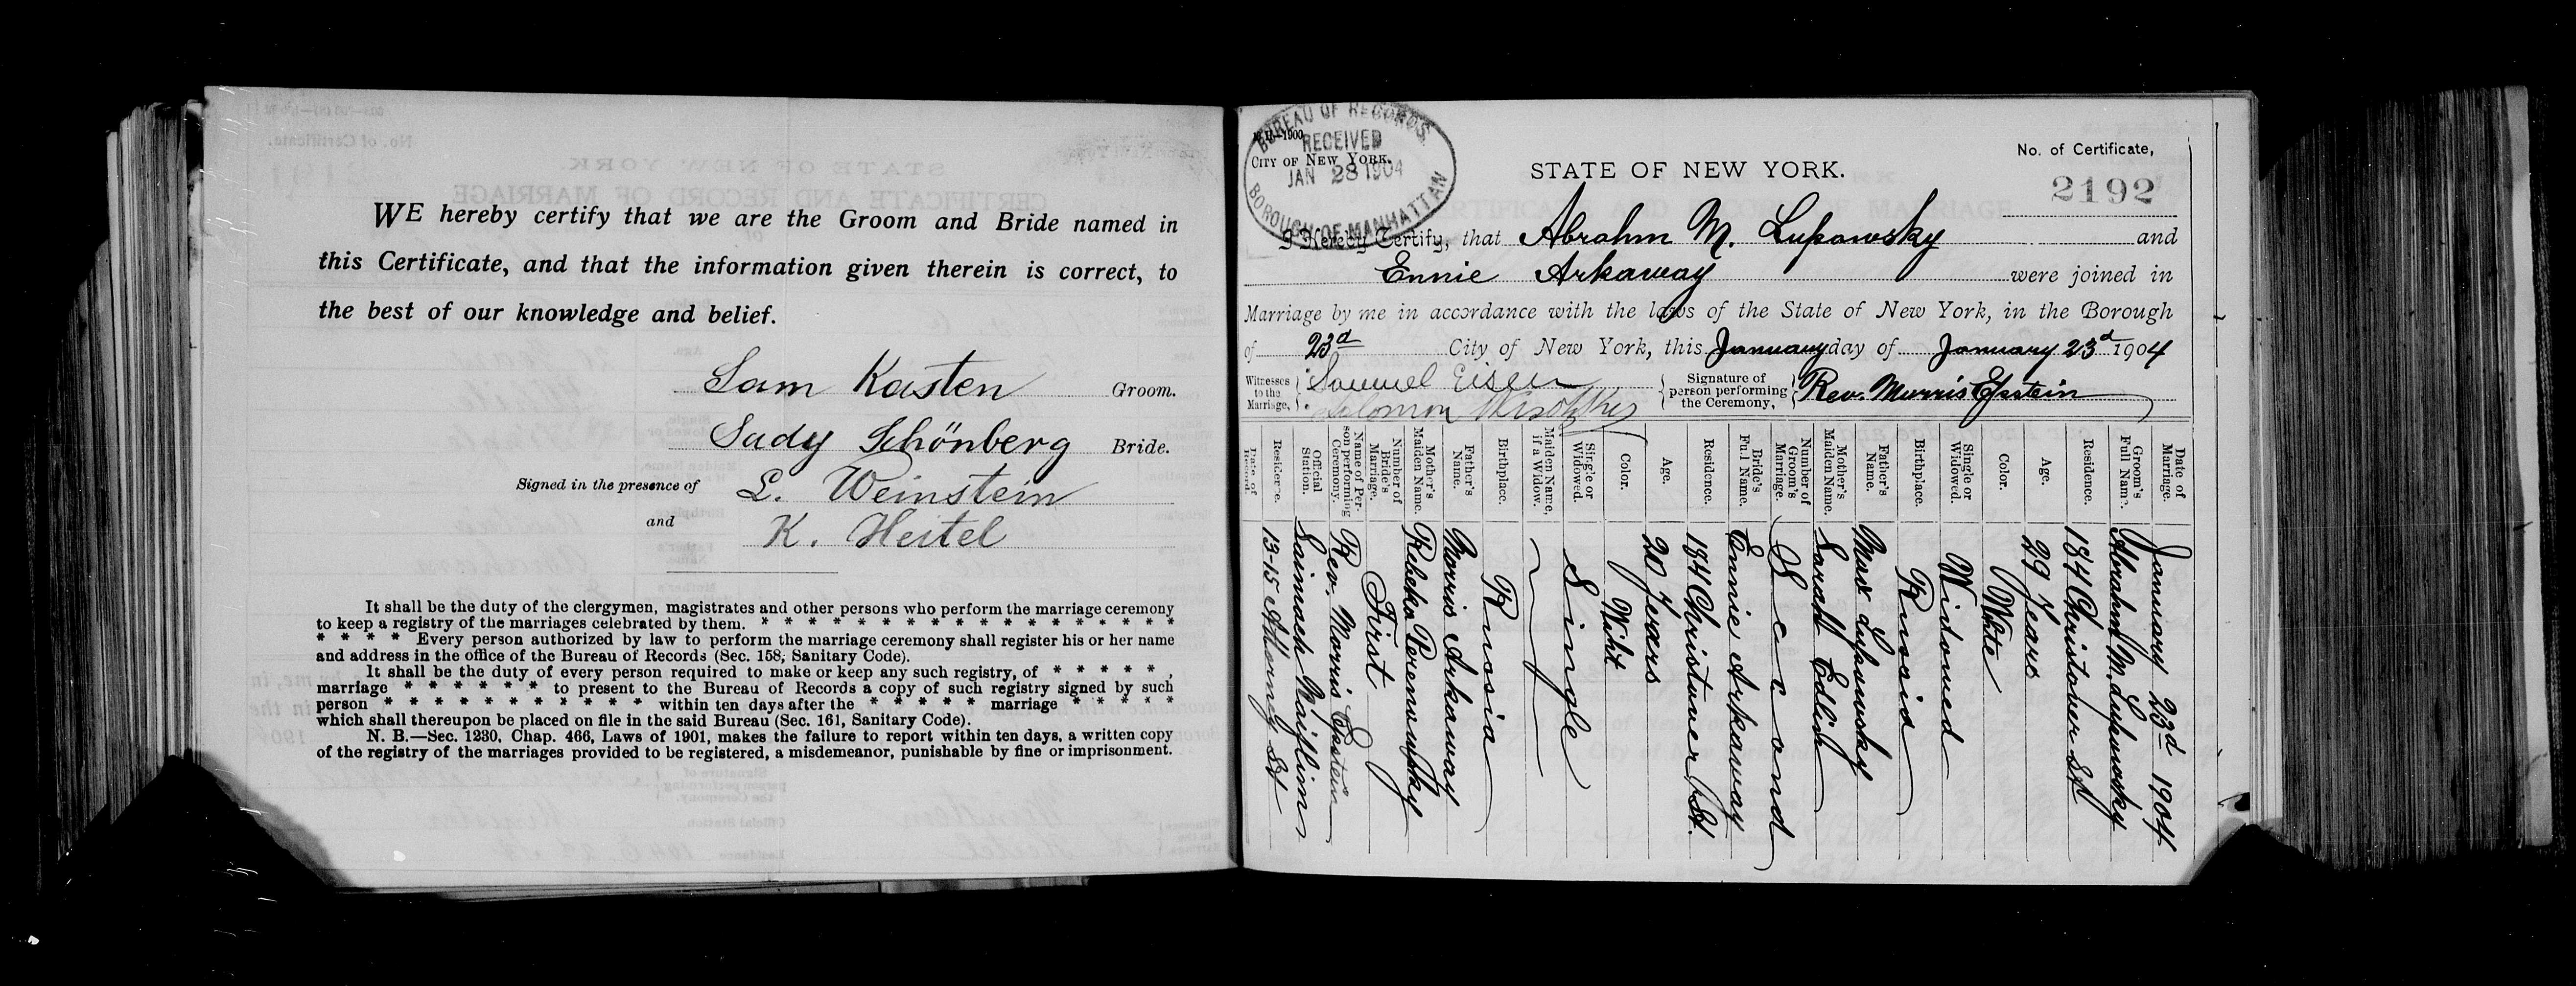 WE hereby certify that we are the Groom and Bride named in
this Certificate, and that the information given therein is correct, to
the best of our knowledge and belief.
Sam Kasten Groom.
Sady Schönberg Bride.
Signed in the presence of L. Weinstein
and K. Heitel
It shall be the duty of the clergymen, magistrates and other persons who perform the marriage ceremony
to keep a registry of the marriages celebrated by them. * * * * * * * * * * * * * * * * *
* * * * Every person authorized by law to perform the marriage ceremony shall register his or her name
and address in the office of the Bureau of Records (Sec. 158, Sanitary Code).
It shall be the duty of every person required to make or keep any such registry, of * * * * * ,
marriage * * * * * * to present to the Bureau of Records a copy of such registry signed by such
person * * * * * * * * * * * within ten days after the * * * * * marriage * * * * *
which shall thereupon be placed on file in the said Bureau (Sec. 161, Sanitary Code).
N. B.—Sec. 1230, Chap. 466, Laws of 1901, makes the failure to report within ten days, a written copy
of the registry of the marriages provided to be registered, a misdemeanor, punishable by fine or imprisonment.
BUREAU OF RECORDS
RECEIVED
JAN 28 1904
BOROUGH OF MANHATTAN
1900
CITY OF NEW YORK.
STATE OF NEW YORK.
No. of Certificate,
2192
I Hereby Certify, that Abrahm M. Lupawsky and
Ennie Arkaway were joined in
Marriage by me in accordance with the laws of the State of New York, in the Borough
of 23d City of New York, this January day of January 23d 1904
Witnesses to the Marriage, Samuel Eisen
Solomon
Signature of person performing the Ceremony, Rev. Morris Epstein
Date of Marriage. January 23d 1904
Groom's Full Name. Abrahm M. Lupawsky
Residence. 184 Christower St
Age. 29 Years
Color. White
Single or Widowed. Widowed
Birthplace. Russia
Father's Name. Max Lupawsky
Mother's Maiden Name. Sarah Edlish
Number of Groom's Marriage. Second
Bride's Full Name. Ennie Arkaway
Residence. 184 Christower St.
Age. 20 Years
Color. Whit
Single or Widowed. Single
Maiden Name, if a Widow.
Birthplace. Russia
Father's Name. Morris Arkaway
Mother's Maiden Name. Rebeka
Number of Bride's Marriage. First
Name of Person performing Ceremony. Rev. Morris Epstein
Official Station.
Residence. 13-15 Attorney St
Date of Record.